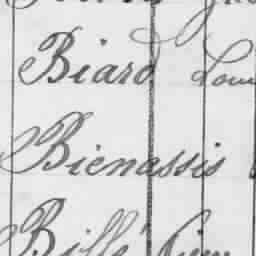 Biard Lou
Bienassis
Billé